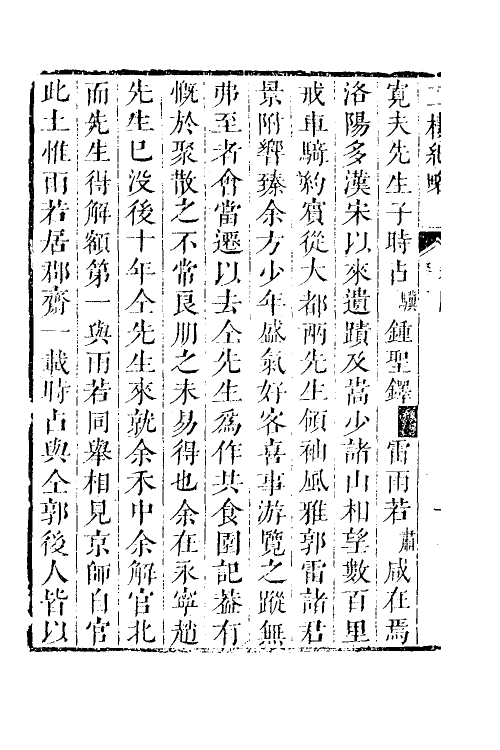 二樓紀略
寛夫先生子時占驥鍾聖鐸雷雨若肅咸在焉
洛陽多漢宋以來遺蹟及嵩少諸山相望數百里
戒車騎約賓從大都兩先生領袖風雅郭雷諸君
景附響臻余方少年盛氣好客喜事游覽之蹤無
弗至者會當遷以去仝先生爲作共食園記葢有
慨於聚散之不常良朋之未易得也余在永寧趙
先生已没後十年仝先生來就余禾中余解官北
而先生得解額第一與雨若同舉相見京師自官
此土惟雨若居郡齋一載時占與仝郭後人皆以